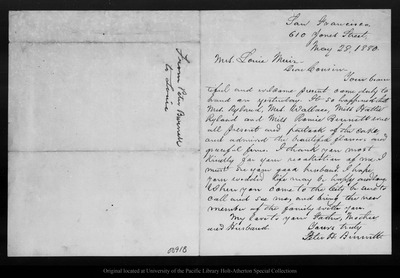 From Peter Burnett
to Louie
San Francisco
610 Jones Street,
May 28, 1880.
Mrs. Louie Muir
Dear Cousin
Your beau
tiful and welcome present came duly to
hand on yesterday. It so happened that
Mrs. Ryland, Mrs. Wallace, Miss Hattie
Ryland and Miss Romie Burnett were
all present and partook of the cake
and admired the beautiful flowers and
graceful ferns. I thank you most
kindly for your recollection of me. I
must see your good husband. I hope
your wedded life may be happy
When you come to the city be sure to
call and see me, and bring the new
member of the family with you.
My love to your Father, Mother
and Husband.
Yours truly
Peter H. Burnett
00913
Original located at University of the Pacific Library Holt-Atherton Special Collections